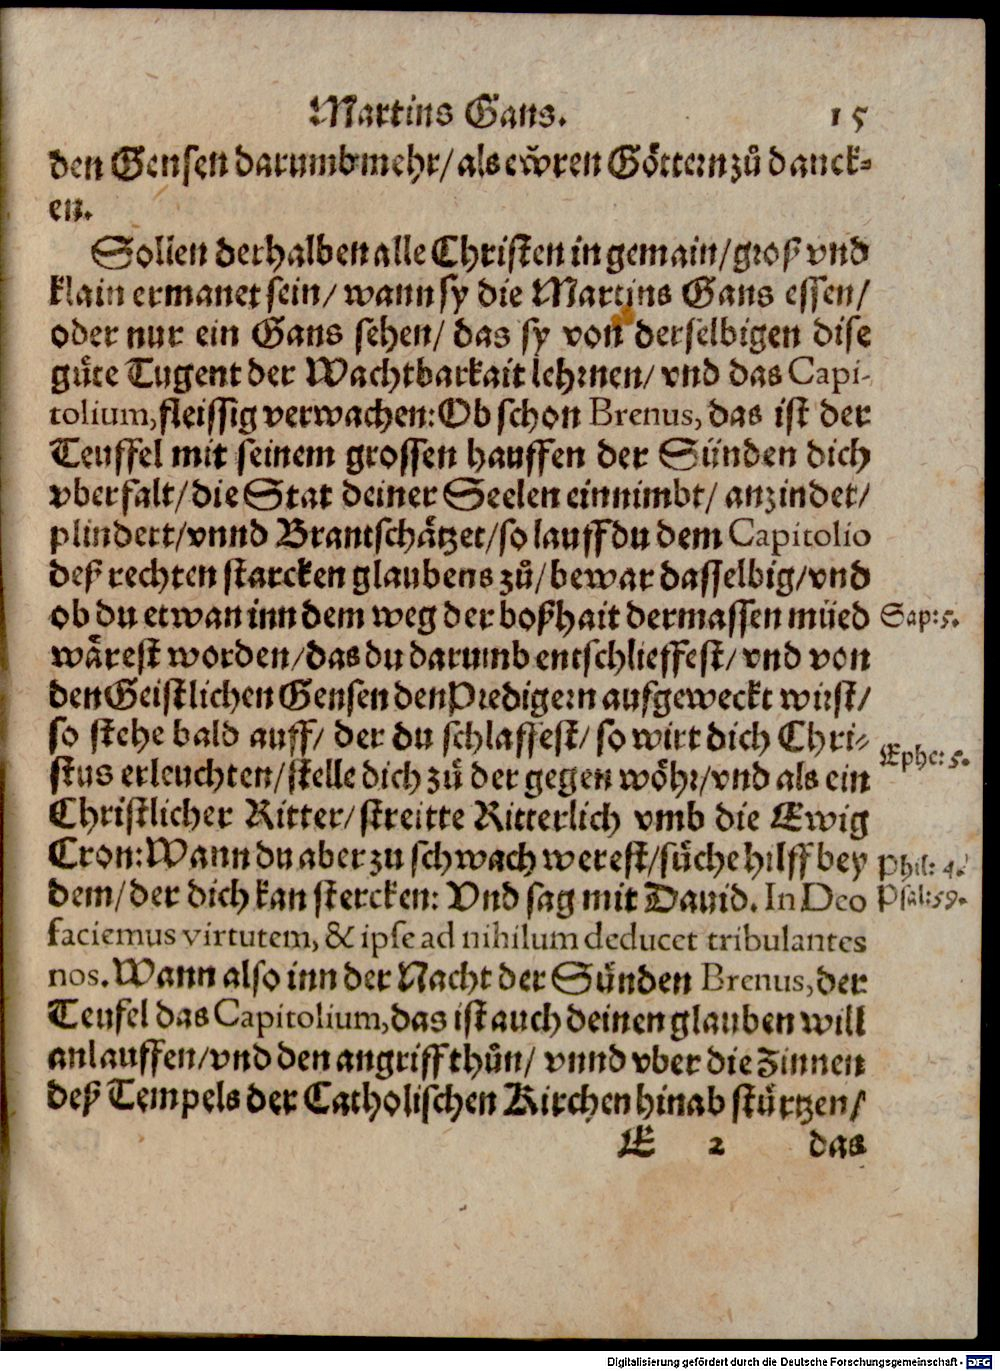 Martins Gans. 15
den Gensen darumb mehr/ als ewren Göttern zů danck-
en.
Sollen derhalben alle Christen in gemain/ groß vnd
klain ermanet sein/ wann sy die Martins Gans essen/
oder nur ein Gans sehen/ das sy von derselbigen dise
gůte Tugent der Wachtbarkait lehrnen/ vnd das Capi-
tolium, fleissig verwachen: Ob schon Brenus, das ist der
Teuffel mit seinem grossen hauffen der Sünden dich
vberfalt/ die Stat deiner Seelen einnimbt/ anzindet/
plindert/ vnnd Brantschätzet/ so lauff du dem Capitolio
deß rechten starcken glaubens zů/ bewar dasselbig/ vnd
ob du etwan inn dem weg der boßhait dermassen müed Sap: 5.
wärest worden/ das du darumb entschlieffest/ vnd von
den Geistlichen Gensen den Predigern aufgeweckt wirst/
so stehe bald auff/ der du schlaffest/ so wirt dich Chri-
stus erleuchten/ stelle dich zů der gegen wöhr/ vnd als ein Ephe: 5.
Christlicher Ritter/ streitte Ritterlich vmb die Ewig
Cron: Wann du aber zu schwach werest/ sůche hilff bey Phil: 4.
dem/ der dich kan stercken: Vnd sag mit Dauid. In Deo Psal: 59.
faciemus virtutem, & ipse ad nihilum deducet tribulantes
nos. Wann also inn der Nacht der Sünden Brenus, der
Teufel das Capitolium, das ist auch deinen glauben will
anlauffen/ vnd den angriff thůn/ vnnd vber die Zinnen
deß Tempels der Catholischen Kirchen hinab stürtzen/
E 2 das
Digitalisierung gefördert durch die Deutsche Forschungsgemeinschaft - DFG